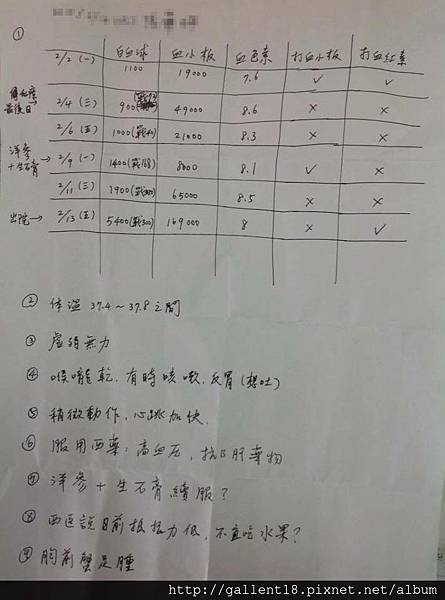 ①
白血球 血小板 血色素 打血小板 打血紅素
2/2 (一) 1100 19000 7.6 ✓ ✓
最後日→ 2/4 (三) 900 49000 8.6 × ×
2/6 (五) 1000 21000 8.3 × ×
洋參+生石膏→ 2/9 (一) 1400 8000 8.1 ✓ ×
2/11 (三) 1900 65000 8.5 × ×
出院→ 2/13 (五) 5400 169000 8 × ✓
② 体溫 37.4~37.8之間
③ 虛弱無力
④ 喉嚨乾, 有時咳嗽, 反胃(想吐)
⑤ 稍微動作, 心跳加快.
⑥ 服用西藥: 高血压, 抗B肝藥物
⑦ 洋參+生石膏續服?
⑧ 西医說目前抵抗力低, 不宜吃水果?
⑨ 胸前蟹足腫
http://gallent18.pixnet.net/album